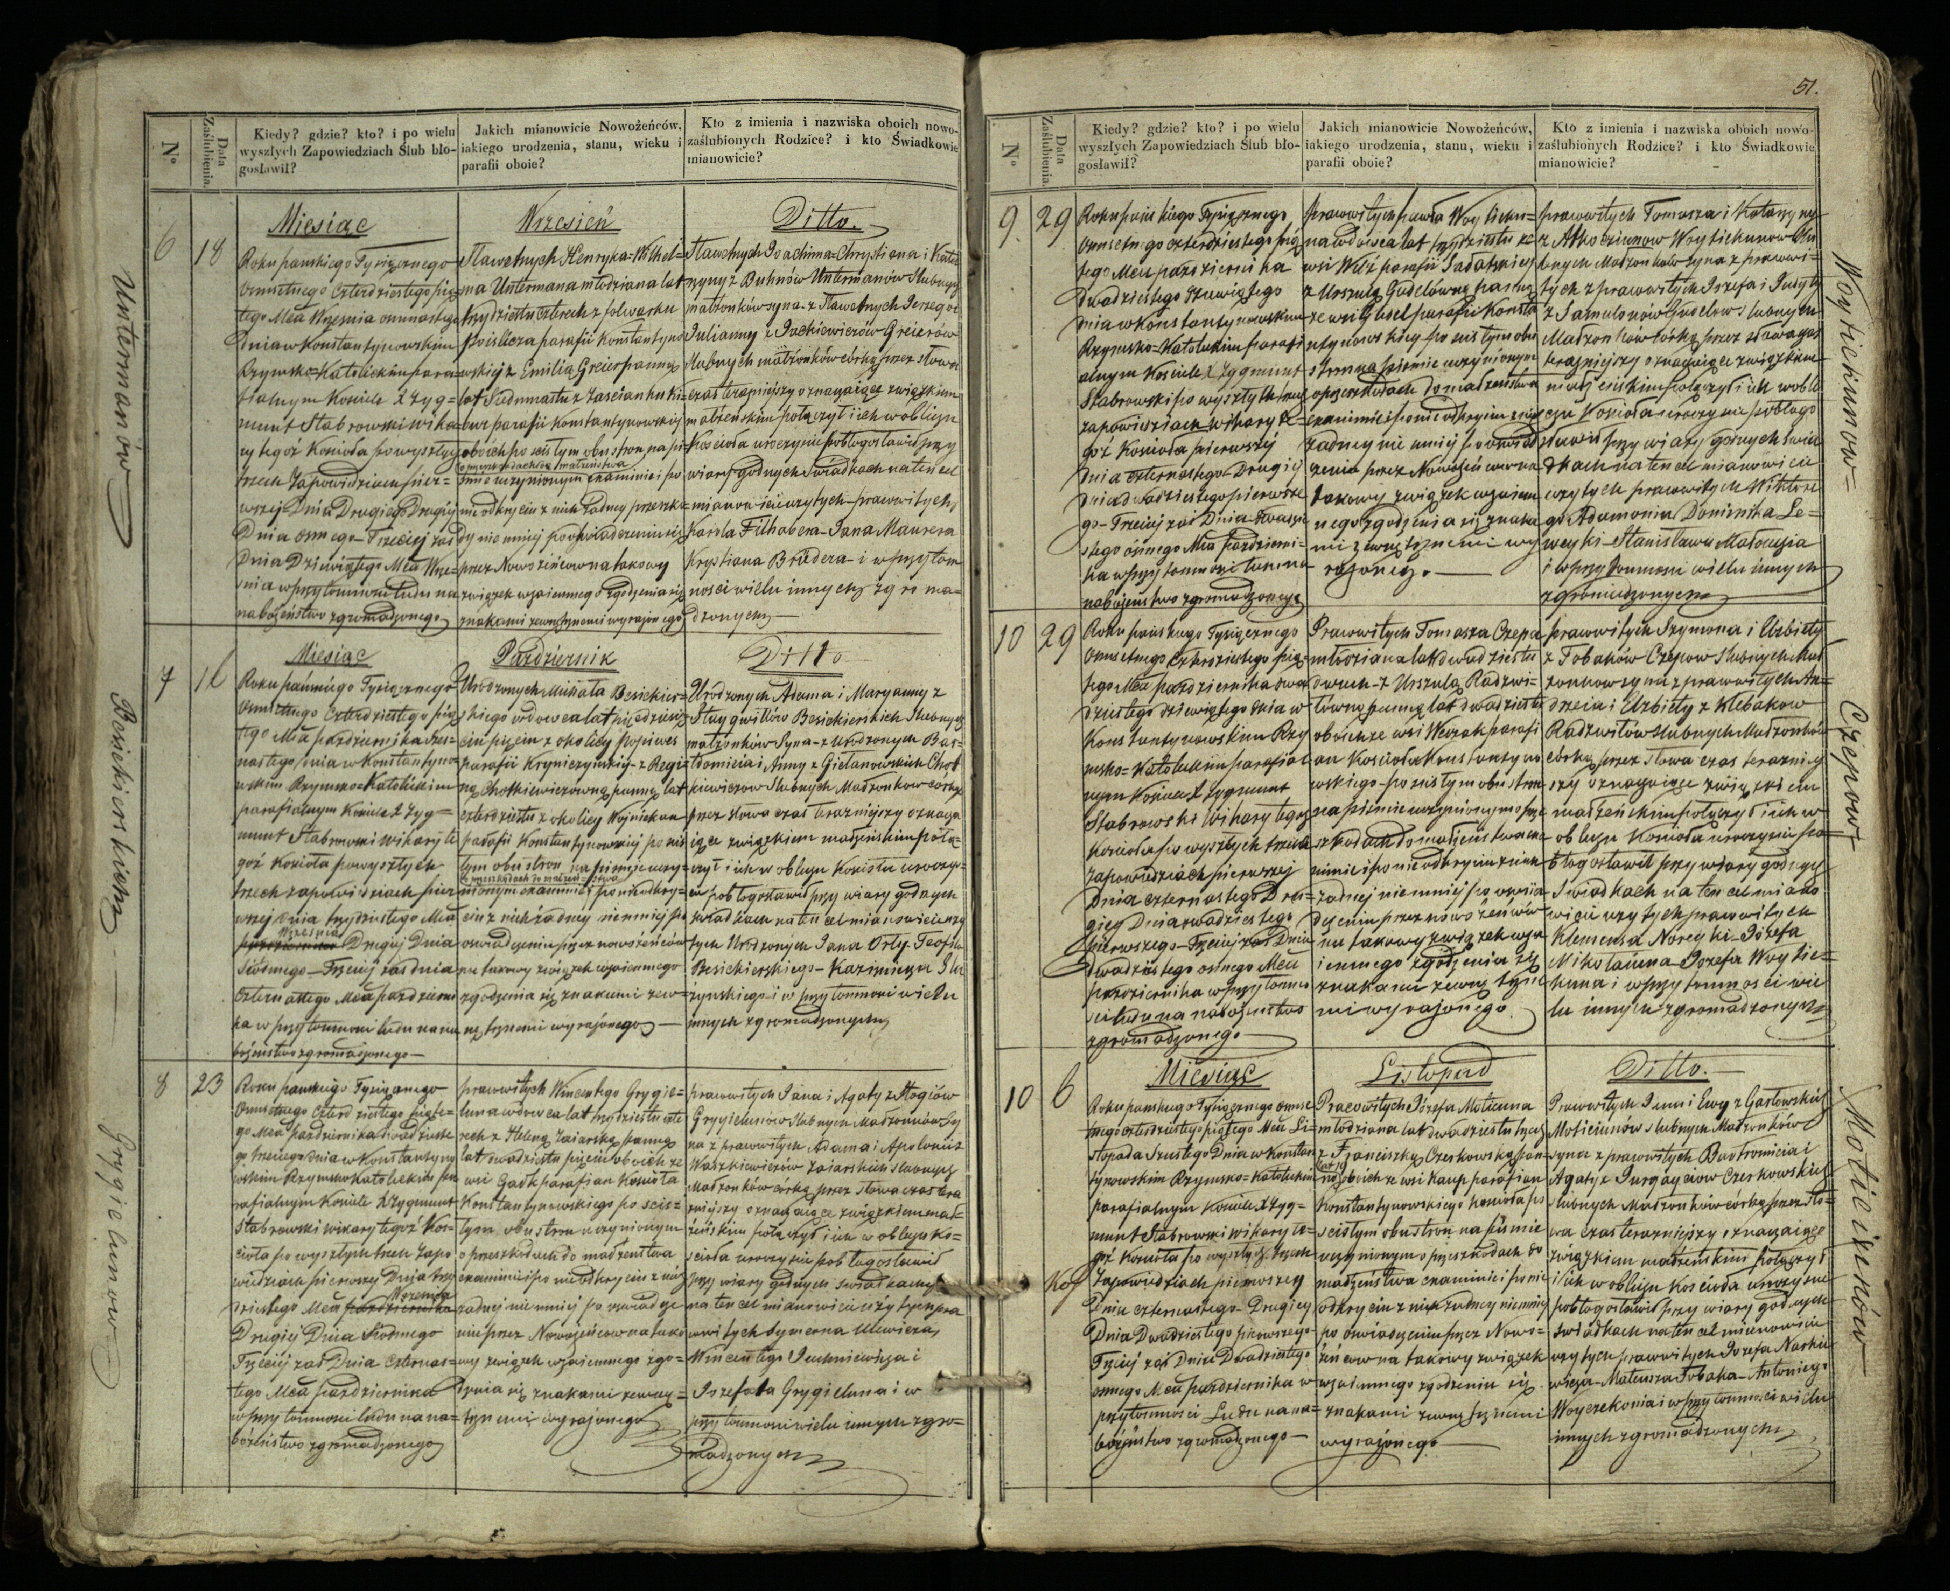 51.
Nº
Data Zaślubienia.
Kiedy? gdzie? kto? i po wielu
wyszłych Zapowiedziach Ślub bło-
gosławił?
Jakich mianowicie Nowożeńców,
iakiego urodzenia, stanu, wieku i
parafii oboie?
Kto z imienia i nazwiska oboich nowo-
zaślubionych Rodzice? i kto Świadkowie
mianowicie?
Untermanów
6
18
Miesiąc
Roku pańskiego Tysiącznego
Osmsetnego Czterdziestego pią-
tego Mca Września osmnastego
Dnia w Konstantynowskim
Rzymsko-Katolickim para-
fialnym Kościele X Zyg-
munt Stabrowski wika-
ry tegoż Kościoła po wyszłych
trzech Zapowiedziach pier-
wszej Dnia Drugiego Drugiej
Dnia osmego Trzeciej zaś
Dnia Dziewiątego Mca Wrze-
śnia w przytomności ludu na
nabożeństwo zgromadzonego
Wrzesień
Sławetnych Henryka-Wilhel-
ma Untermana młodziana lat
trzydziestu czterech z folwarku
parafii Konstantyno-
wskiej z Emilią Greier panną
lat siedmnastu z Zaścianku
parafii Konstantynowskiej
oboich po ścisłym obustron na pi-
o przeszkodach do małżeństwa
śmie uczynionym examinie i po
nie odkryciu z nich żadney przeszko-
dy niemniej po oświadczeniu się
przez Nowożeńców na takowy
związek wzaiemnego zgodzenia się
znakami zewnętrznemi wyrażonego
Ditto.
Sławetnych Joachima-Chrystiana i Kata-
rzyny z Buhnów Untermanów Ślubnych
małżonków syna - z Sławetnych Jerzego i
Julianny z Jackiewiczów Greierów
Ślubnych małżonków córkę przez słowa
czas teraźniejszy oznaczaiące związkiem
małżeńskim połączył i ich w obliczu
Kościoła uroczyście pobłogosławił przy
wiary godnych Świadkach na ten cel
mianowicie użytych prawowitych
Karola Filhabera - Jana Maurera
Krystiana Brüdera - i w przytom
ności wielu innych zgroma-
dzonych
Bońckierskich
7
16
Miesiąc
Roku pańskiego Tysiącznego
Osmsetnego Czterdziestego pią-
tego Mca października szes-
nastego dnia w Konstantyno-
wskim Rzymsko-Katolickim
parafialnym Kościele X Zyg-
munt Stabrowski Wikary te-
goż Kościoła po wyszłych
trzech zapowiedziach pier
wszej dnia trzydziestego Mca
Września
Drugiej Dnia
Siódmego - Trzeciej zaś dnia
czternastego Mca październi
ka w przytomności ludu na na
bożeństwo zgromadzonego
Październik
Urodzonych Michała Besickier-
skiego wdowca lat pięćdziesię
ciu pięciu z okolicy Popiewes
parafii Krynicyńskiej - z Regi
ną Chotkiewiczówną panną lat
czterdziestu z okolicy
parafii Konstantynowskiej po ścis
tym obustron na piśmie uczy-
o przeszkodach do małżeństwa
nionym examinie i po nieodkry-
ciu z nich żadney niemniej po
oświadczeniu przez nowożeńców
na takowy związek wzaiemnego
zgodzenia się znakami zew-
nętrznemi wyrażonego
Ditto
Urodzonych Adama i Maryanny z
Staygwiłłów Besickierskich Ślubnych
małżonków Syna - z Urodzonych Bar-
tłomieia i Anny z Gielanowskich Chot
kiewiczów Ślubnych Małżonków córkę
przez słowa czas teraźniejszy oznacza
iące związkiem małżeńskim połą-
czył i ich w obliczu Kościoła uroczy-
ście pobłogosławił przy wiary godnych
świadkach na ten cel mianowicie uży
tych Urodzonych Jana Orły Teofila
Besickierskiego - Kazimierza
i w przytomności wielu
innych zgromadzonych
Grygielunow
8
23
Roku pańskiego Tysiącznego
Osmsetnego Czterdziestego piąte-
go Mca października dwudzieste
go trzeciego dnia w Konstantyno
wskim Rzymsko Katolickim pa
rafialnym Kościele X Zygmunt
Stabrowski wikary tegoż Koś-
cioła po wyszłych trzech zapo
wiedziach pierwszej Dnia trzy
dziestego Mca Września
Drugiej Dnia Siódmego
Trzeciej zaś Dnia czternas-
tego Mca października
w przytomności ludu na na-
bożeństwo zgromadzonego
prawowitych Wincentego Grygie-
luna wdowca lat trzydziestu czte
rech z Heleną Zaiarską panną
lat dwudziestu pięciu oboich ze
wsi Gadk parafian Kościoła
Konstantynowskiego po ścis-
tym obustron uczynionym
o przeszkodach do małżeństwa
examinie i po nieodkryciu z nich
żadney niemniej po oświadcze
niu przez Nowożeńców na tako
wy związek wzaiemnego zgo-
dzenia się znakami zewnę-
trznemi wyrażonego
prawowitych Jana i Agaty z Stogiów
Grygielunów Ślubnych Małżonków Sy
na z prawowitych Adama i Apolonii z
Waszkiewiczów Zaiarskich Ślubnych
Małżonków córkę przez słowa czas tera
źniejszy oznaczaiące związkiem mał-
żeńskim połączył i ich w obliczu Ko-
ścioła uroczyście pobłogosławił
przy wiary godnych świadkach
na ten cel mianowicie użytych pra
wowitych Symeona
Wincentego Juchniewicza i
Jozefata Grygieluna i w
przytomności wielu innych zgro-
madzonych
Nº
Data Zaślubienia.
Kiedy? gdzie? kto? i po wielu
wyszłych Zapowiedziach Ślub bło-
gosławił?
Jakich mianowicie Nowożeńców,
iakiego urodzenia, stanu, wieku i
parafii oboie?
Kto z imienia i nazwiska oboich nowo-
zaślubionych Rodzice? i kto Świadkowie
mianowicie?
9.
29
Roku pańskiego Tysiącznego
Osmsetnego czterdziestego pią
tego Mca października
dwudziestego dziewiątego
dnia w Konstantynowskim
Rzymsko-Katolickim parafi
alnym Kościele X Zygmunt
Stabrowski po wyszłych trzech
zapowiedziach wikary te-
goż Kościoła pierwszej
dnia czternastego Drugiej
dnia dwudziestego pierwsze
go - Trzeciej zaś Dnia dwudzie
stego ósmego Mca październi-
ka w przytomności ludu na
nabożeństwo zgromadzonego
prawowitych Pawła Woytiekiu-
na wdowca lat trzydziestu ze
wsi parafii
z Urszulą Gudelówną panną
ze wsi parafii Konsta
ntynowskiey po ścisłym obu
stronną piśmie uczynionym
o przeszkodach do małżeństwa
examinie i po nieodkryciu z nich
żadney nie mniej po oświad
czeniu przez Nowożeńców na
takowy związek wzaiem
nego zgodzenia się znaka
mi zewnętrznemi wy
rażonego.
prawowitych Tomasza i Katarzyny
z Woytiekunow Ślu
bnych Małżonków Syna z prawowi-
tych z prawowitych Józefa i Judyty
z Samulonów Gudelow Ślubnych
Małżonków córkę przez słowa czas
teraźniejszy oznaczaiące związkiem
małżeńskim połączył i ich w obli-
czu Kościoła uroczyście pobłogo
sławił przy wiary godnych świa
dkach na ten cel mianowicie
użytych prawowitych Wiktore
go Adamonia Dominika Le-
weyki - Stanisława
i w przytomności wielu innych
zgromadzonych
Woytiekunow
10
29
Roku pańskiego Tysiącznego
Osmsetnego Czterdziestego pią-
tego Mca października dwu
dziestego dziewiątego dnia w
Konstantynowskim Rzy
msko-Katolickim parafial
nym Kościele X Zygmunt
Stabrowski Wikary tegoż
Kościoła po wyszłych trzech
zapowiedziach pierwszej
dnia czternastego Dru-
giey Dnia dwudziestego
pierwszego - Trzeciej zaś Dnia
dwudziestego osmego Mca
października w przytomno
ści ludu na nabożeństwo
zgromadzonego
Prawowitych Tomasza Czepa
młodziana lat dwudziestu
dwuch - z Urszulą Radzwi-
łówną panną lat dwudziestu
oboich ze wsi parafi
an Kościoła Konstantyno
wskiego - po ścisłym obustron
na piśmie uczynionym o prze
szkodach do małżeństwa exa
minie i po nieodkryciu z nich
żadney niemniej po oświa
dczeniu przez nowożeńców
na takowy związek wza
iemnego zgodzenia się
znakami zewnętrzne
mi wyrażonego
prawowitych Szymona i Elżbiety
z Tobaków Czepow Ślubnych Mał
żonków syna z prawowitych An-
drzeia i Elżbiety z Klebakow
Radzwiłów Ślubnych Małżonków
córkę przez słowa czas teraźniej
szy oznaczaiące związkiem
małżeńskim połączył i ich w
obliczu Kościoła uroczyście po
błogosławił przy wiary godnych
Świadkach na ten cel miano
wicie użytych prawowitych
Klemensa Noreyki - Józefa
Mikołaiuna - Jozefa Woytie-
kuna i w przytomności wie
lu innych zgromadzonych
Czepow
10
6
Miesiąc
Roku pańskiego Tysiącznego osmse
tnego czterdziestego piątego Mca Li-
stopada Szóstego Dnia w Konstan
tynowskim Rzymsko-Katolickim
parafialnym Kościele X Zyg-
munt Stabrowski Wikary te-
goż Kościoła po wyszłych trzech
Zapowiedziach pierwszey
Dnia czternastego - Drugiey
Dnia Dwudziestego pierwszego
Trzeciej zaś Dnia Dwudziestego
osmego Mca października w
przytomności Ludu na na-
bożeństwo zgromadzonego
Listopad
Pracowitych Józefa Moticuna
młodziana lat dwudziestu trzech
z Franciszką Czeskowską pan
ną oboich ze wsi parafian
Konstantynowskiego Kościoła po
ścisłym obustron na piśmie
uczynionym o przeszkodach do
małżeństwa examinie i po nie
odkryciu z nich żadney niemniej
po oświadczeniu przez Nowo-
żeńców na takowy związek
wzaiemnego zgodzenia się
znakami zewnętrznemi
wyrażonego
Ditto.
Prawowitych Jana i Ewy z Gasłowskich
Moticunow Ślubnych Małżonków
syna z prawowitych Bartłomieia i
Agaty z Czeskowskich
Ślubnych Małżonków córkę przez Sło-
wa czas teraźniejszy oznaczaiące
związkiem małżeńskim połączył
i ich w obliczu Kościoła uroczyście
pobłogosławił przy wiary godnych
świadkach na ten cel mianowicie
użytych prawowitych Józefa
Mateusza Tobaka - Antoniego
i w przytomności wielu
innych zgromadzonych
Moticunów